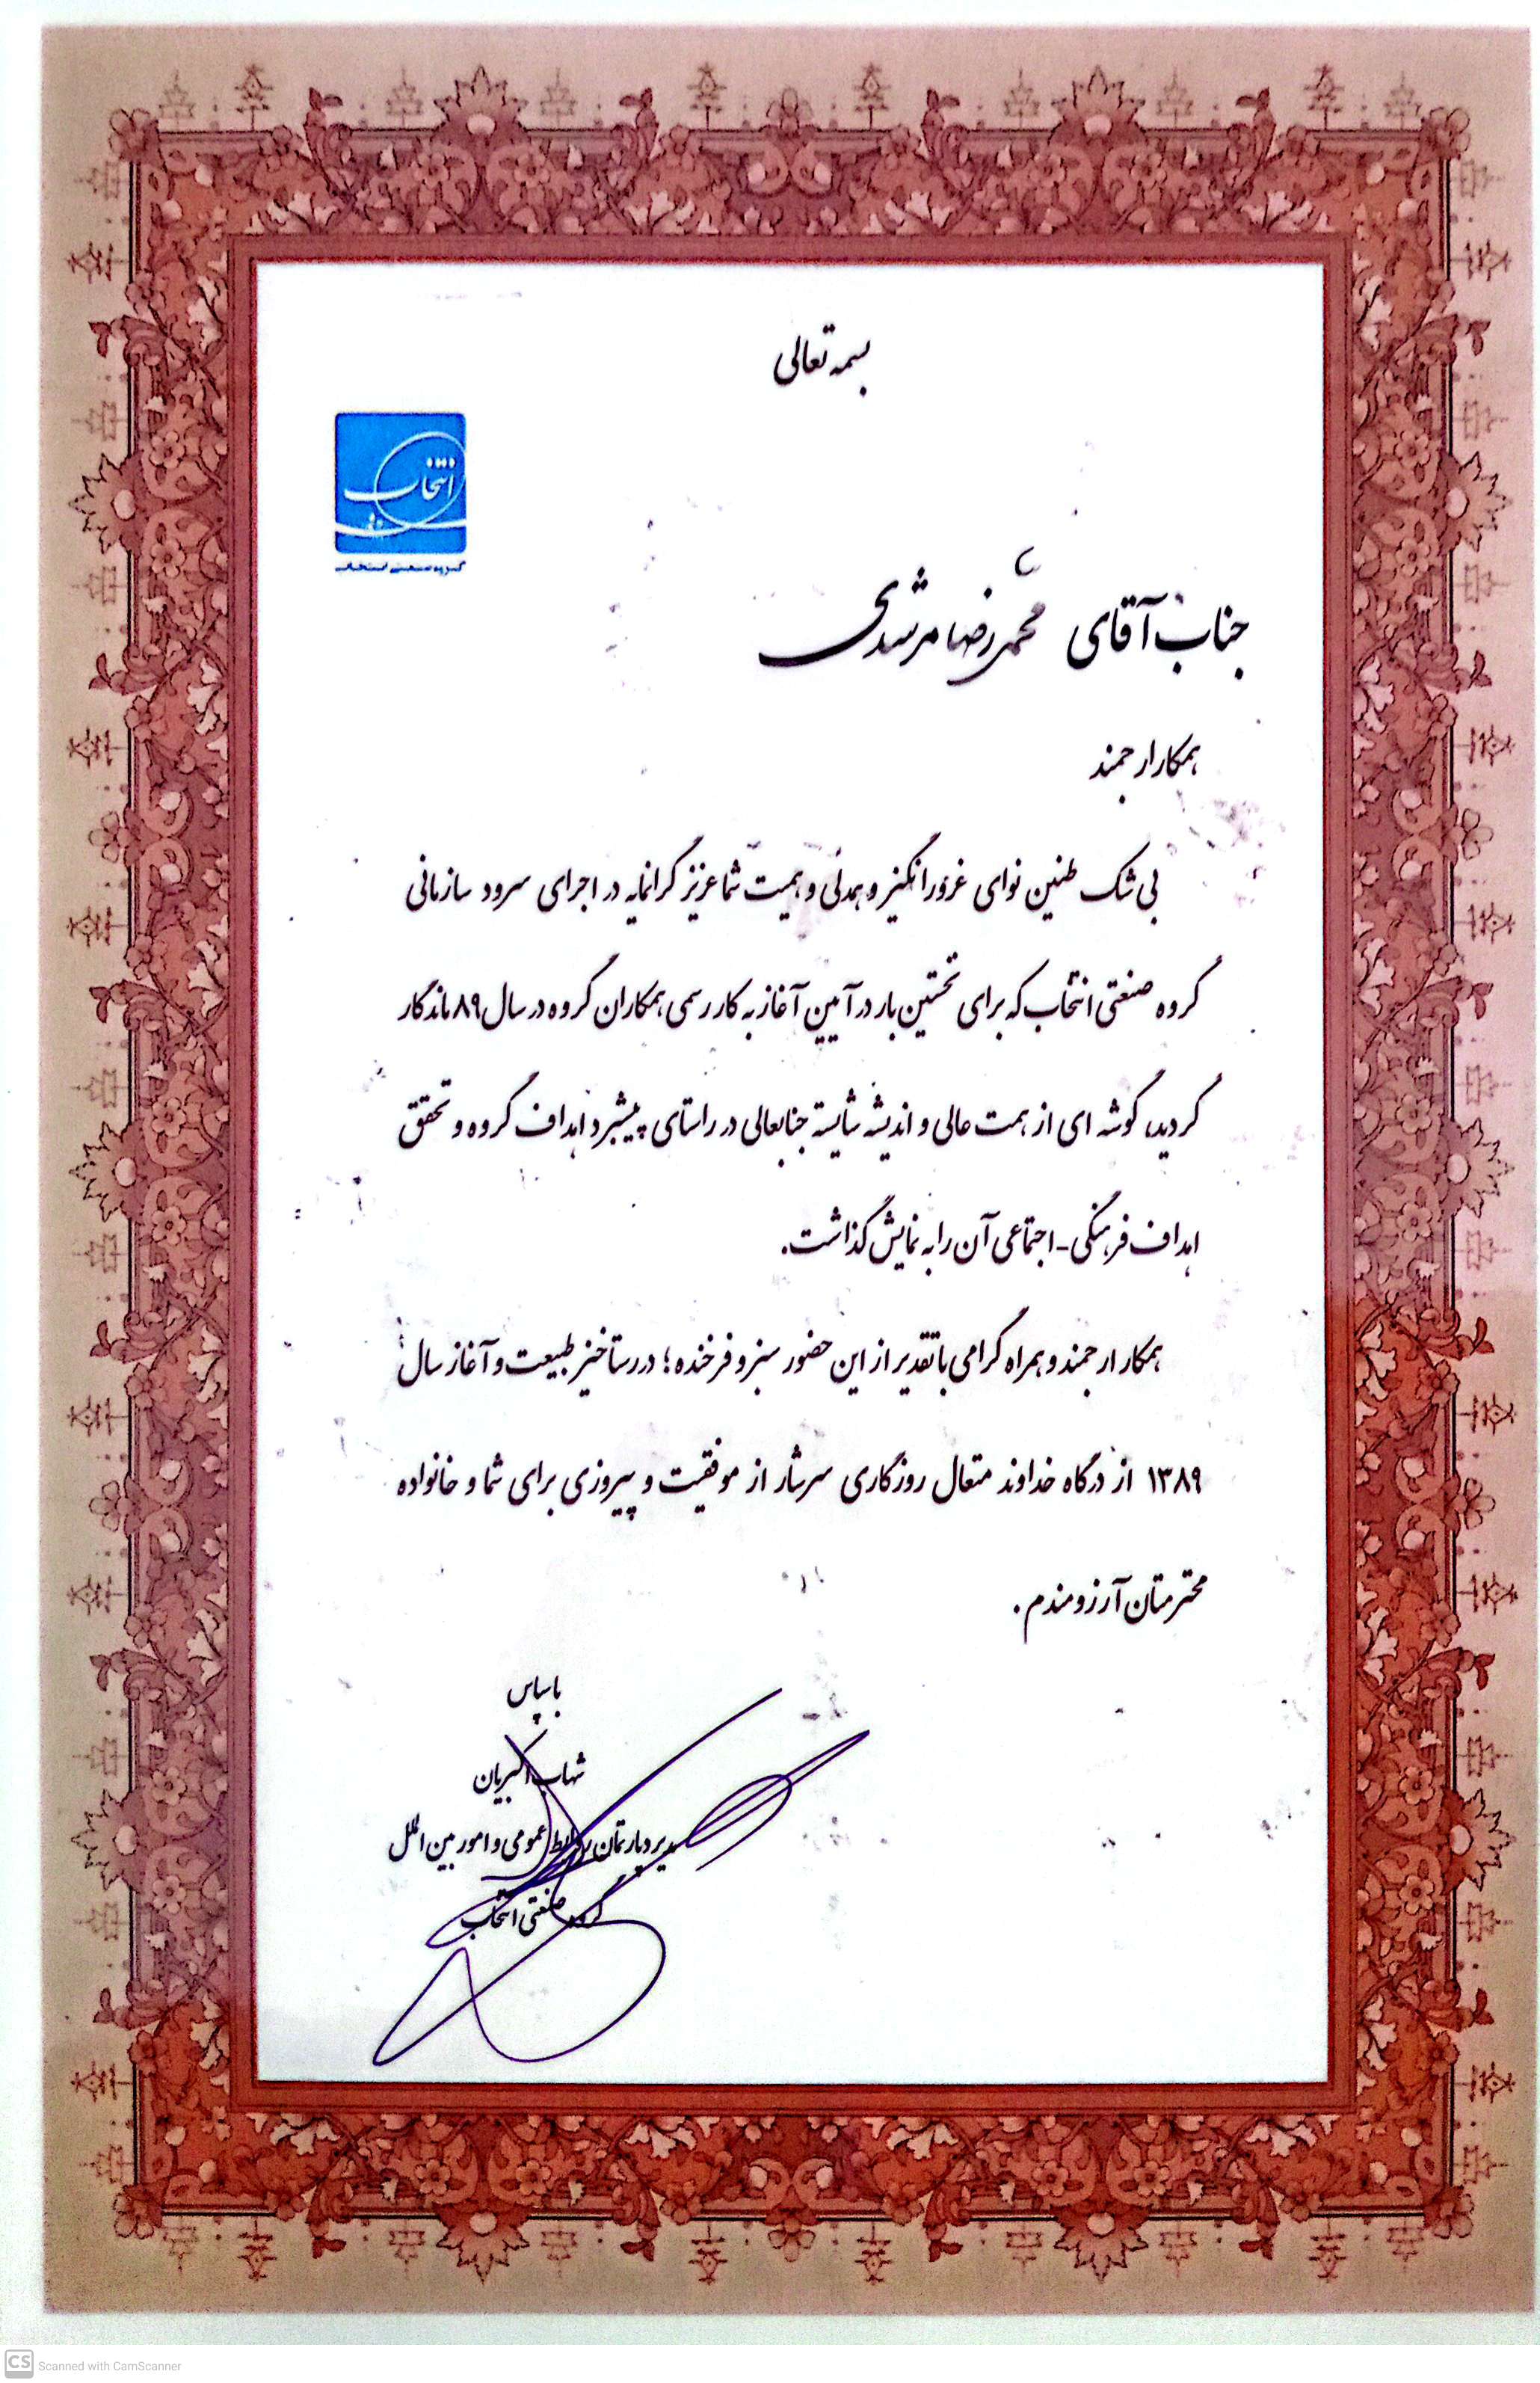 بسمه تعالی
انتخاب
گروه صنعتی انتخاب
جناب آقای محمدرضا مرشدی
همکار ارجمند
بی شک طنین نوای غرورانگیز و همدلی و همیت شما عزیز گرانمایه در اجرای سرود سازمانی
گروه صنعتی انتخاب که برای نخستین بار در آیین آغاز به کار رسمی همکاران گروه در سال ۸۹ ماندگار
گردید، گوشه ای از همت عالی و اندیشه شایسته جنابعالی در راستای پیشبرد اهداف گروه و تحقق
اهداف فرهنگی-اجتماعی آن را به نمایش گذاشت.
همکار ارجمند و همراه گرامی با تقدیر از این حضور سبز و فرخنده؛ در رستاخیز طبیعت و آغاز سال
۱۳۸۹ از درگاه خداوند متعال روزگاری سرشار از موفقیت و پیروزی برای شما و خانواده
محترمتان آرزومندم.
با سپاس
شهاب اکبریان
مدیر دپارتمان روابط عمومی و امور بین الملل
گروه صنعتی انتخاب
CS Scanned with CamScanner